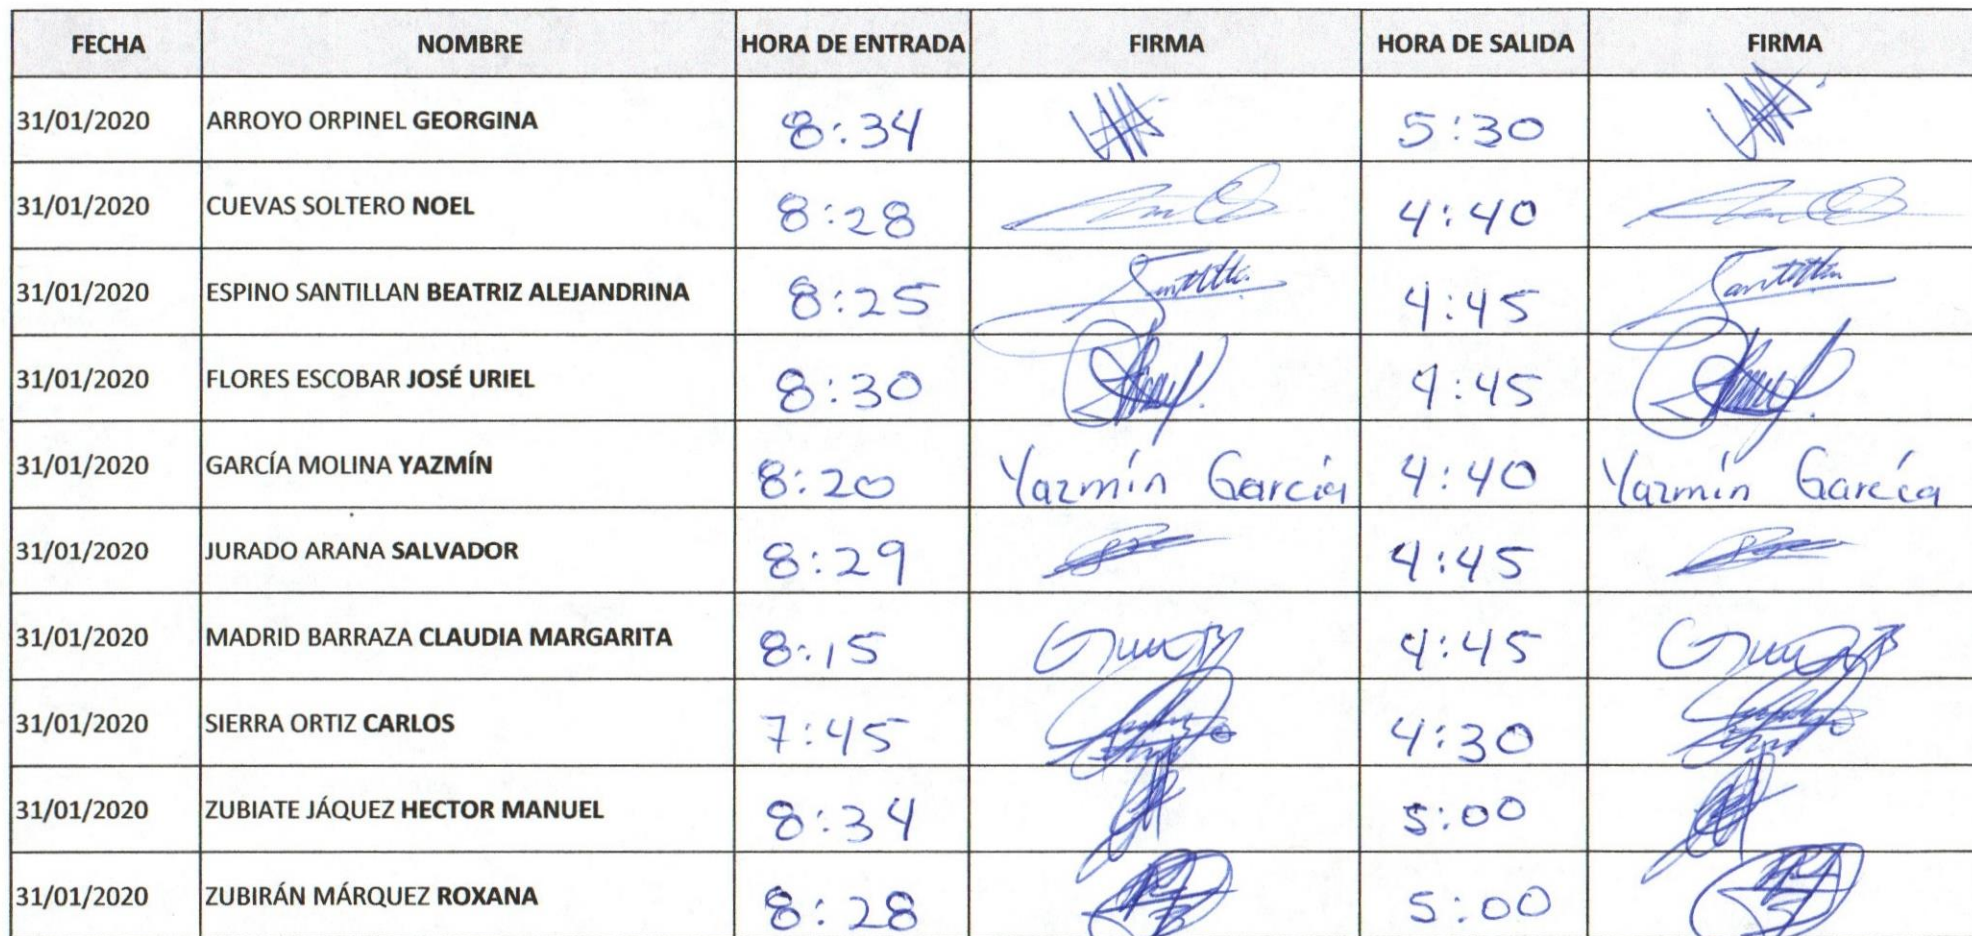 FECHA NOMBRE HORA DE ENTRADA FIRMA HORA DE SALIDA FIRMA
31/01/2020 ARROYO ORPINEL GEORGINA 8:34 5:30
31/01/2020 CUEVAS SOLTERO NOEL 8:28 4:40
31/01/2020 ESPINO SANTILLAN BEATRIZ ALEJANDRINA 8:25 4:45
31/01/2020 FLORES ESCOBAR JOSÉ URIEL 8:30 4:45
31/01/2020 GARCÍA MOLINA YAZMÍN 8:20 Yazmín García 4:40 Yazmín García
31/01/2020 JURADO ARANA SALVADOR 8:29 4:45
31/01/2020 MADRID BARRAZA CLAUDIA MARGARITA 8:15 4:45
31/01/2020 SIERRA ORTIZ CARLOS 7:45 4:30
31/01/2020 ZUBIATE JÁQUEZ HECTOR MANUEL 8:34 5:00
31/01/2020 ZUBIRÁN MÁRQUEZ ROXANA 8:28 5:00